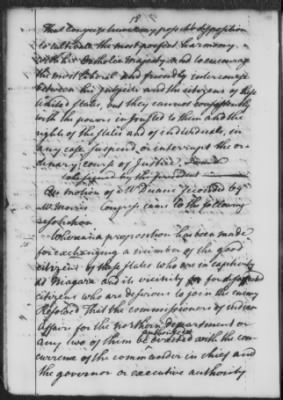 18
That Congress have every possible disposition
to cultivate the most perfect harmony
with his Catholic majesty and to encourage
the most liberal and friendly intercourse
between his subjects and the citizens of these
United States, but they cannot consistently
with the powers intrusted to them and the
rights of the States and of individuals, in
any case suspend or interrupt the or-
dinary course of Justice.
signed by the president
On motion of Mr Duane seconded by
Mr Morris Congress came to the following
resolution
Whereas a proposition has been made
for exchanging a number of the good
citizens of these states who are in captivity
at Niagara and its vicinity for
citizens who are desirous to join the enemy
Resolved That the commissioners of indian
affairs for the northern department or
any two of them be authorised with the con-
currence of the commander in chief and
the governor or executive authority